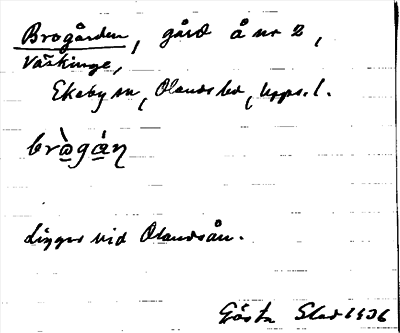 Brogården, gård å nr 2,
Väskinge,
Ekeby sn, Olands hd, Upps. l.
brògán
Ligger vid Olandsån.
Gösta 1936